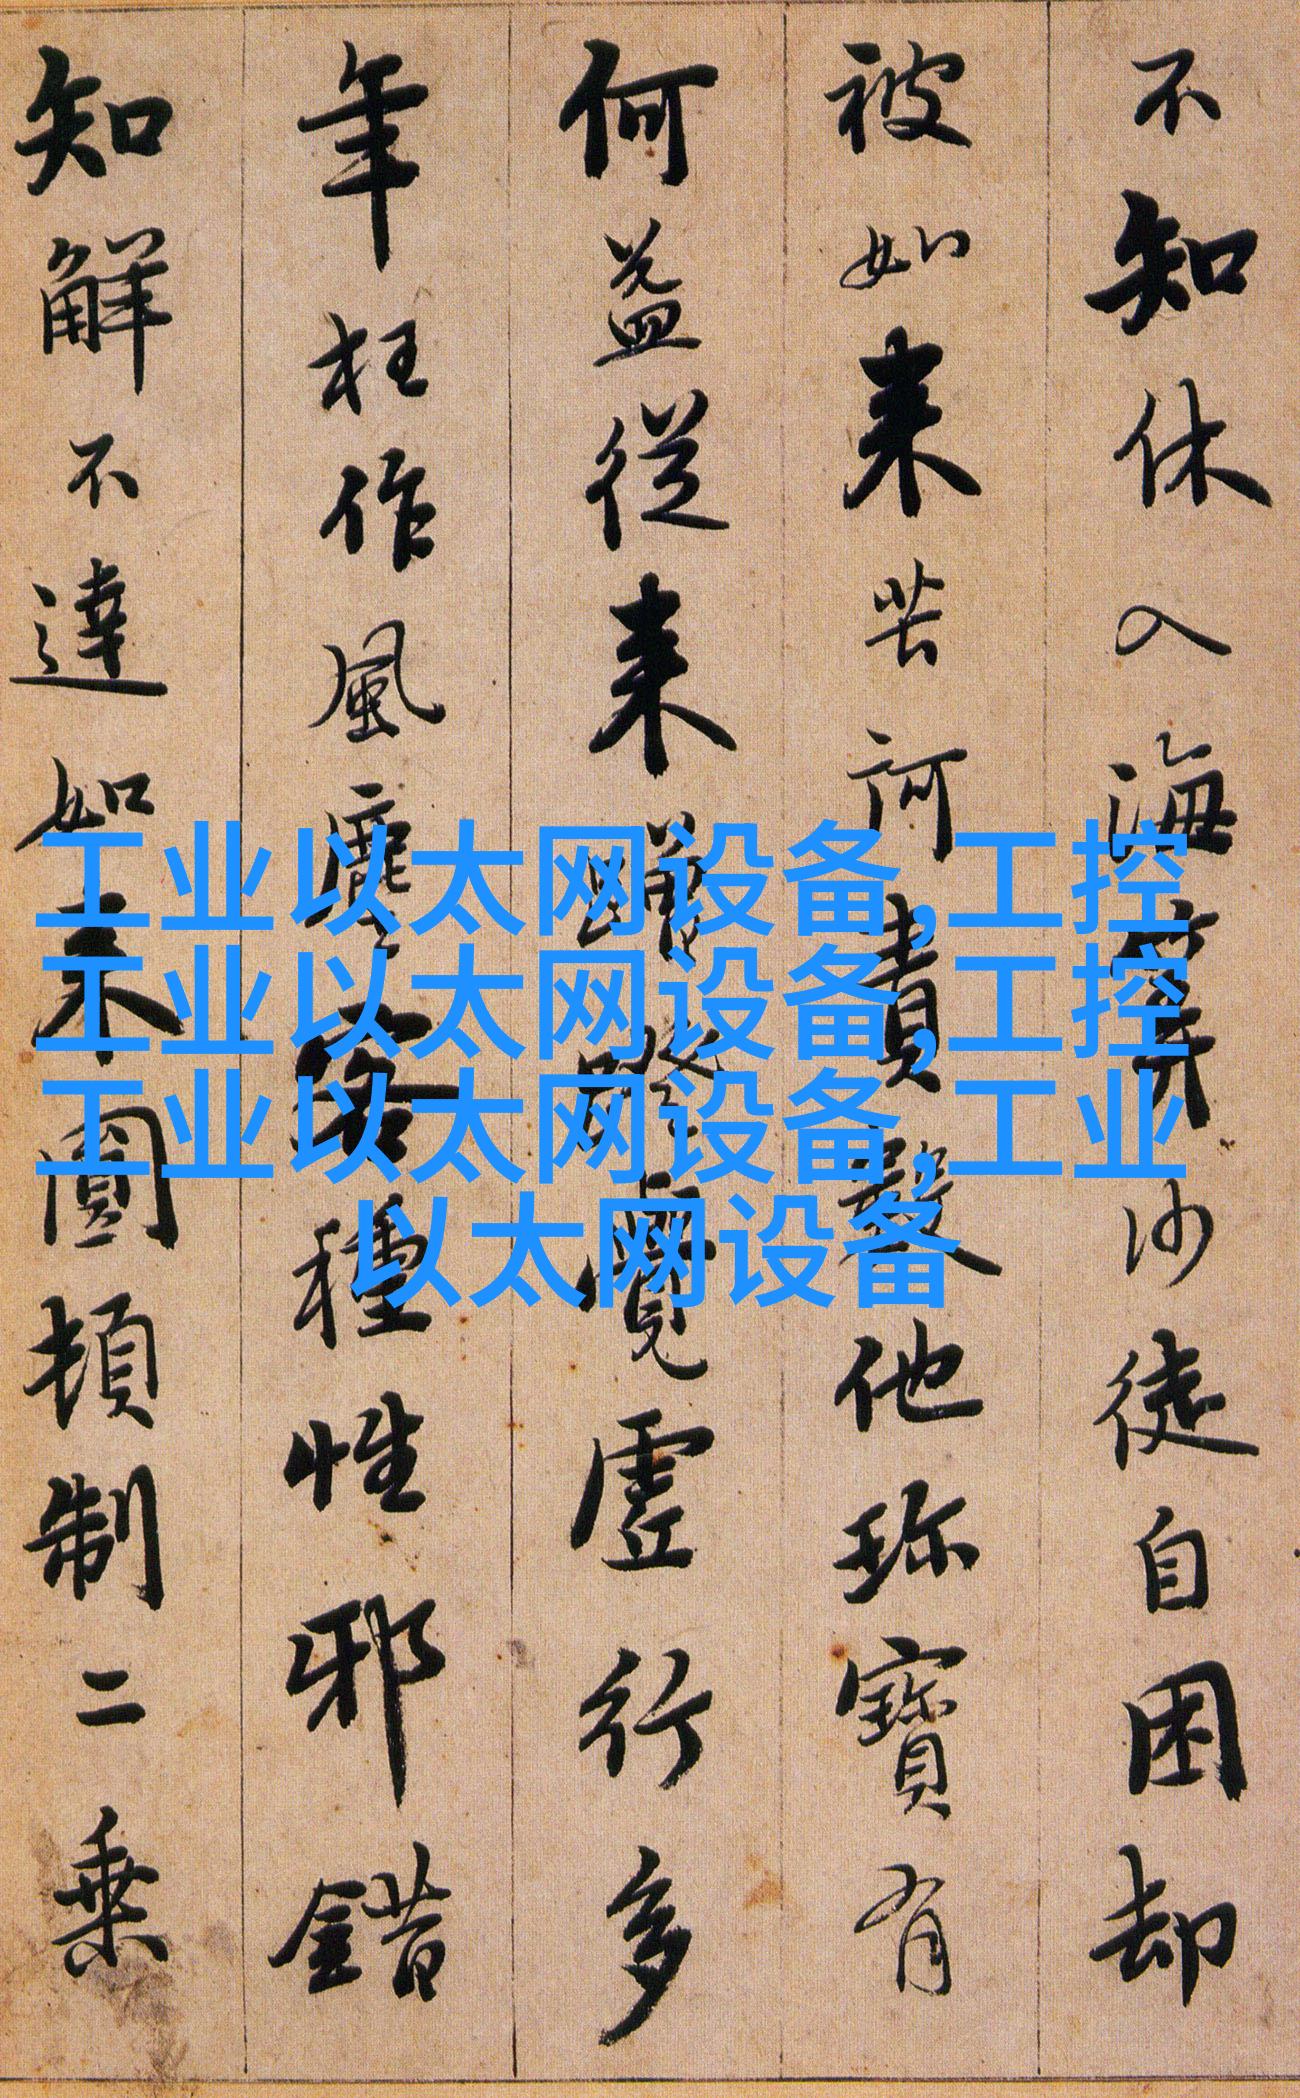 不知休入海筭沙徒自困却
被如来苦訶責數他珎寶有
何益從来蹭蹬覺虚行多
年枉作風塵客種性邪錯
知解不達如来圓頓制二乗
工业以太网设备,工控
工业以太网设备,工控
工业以太网设备,工业
以太网设备